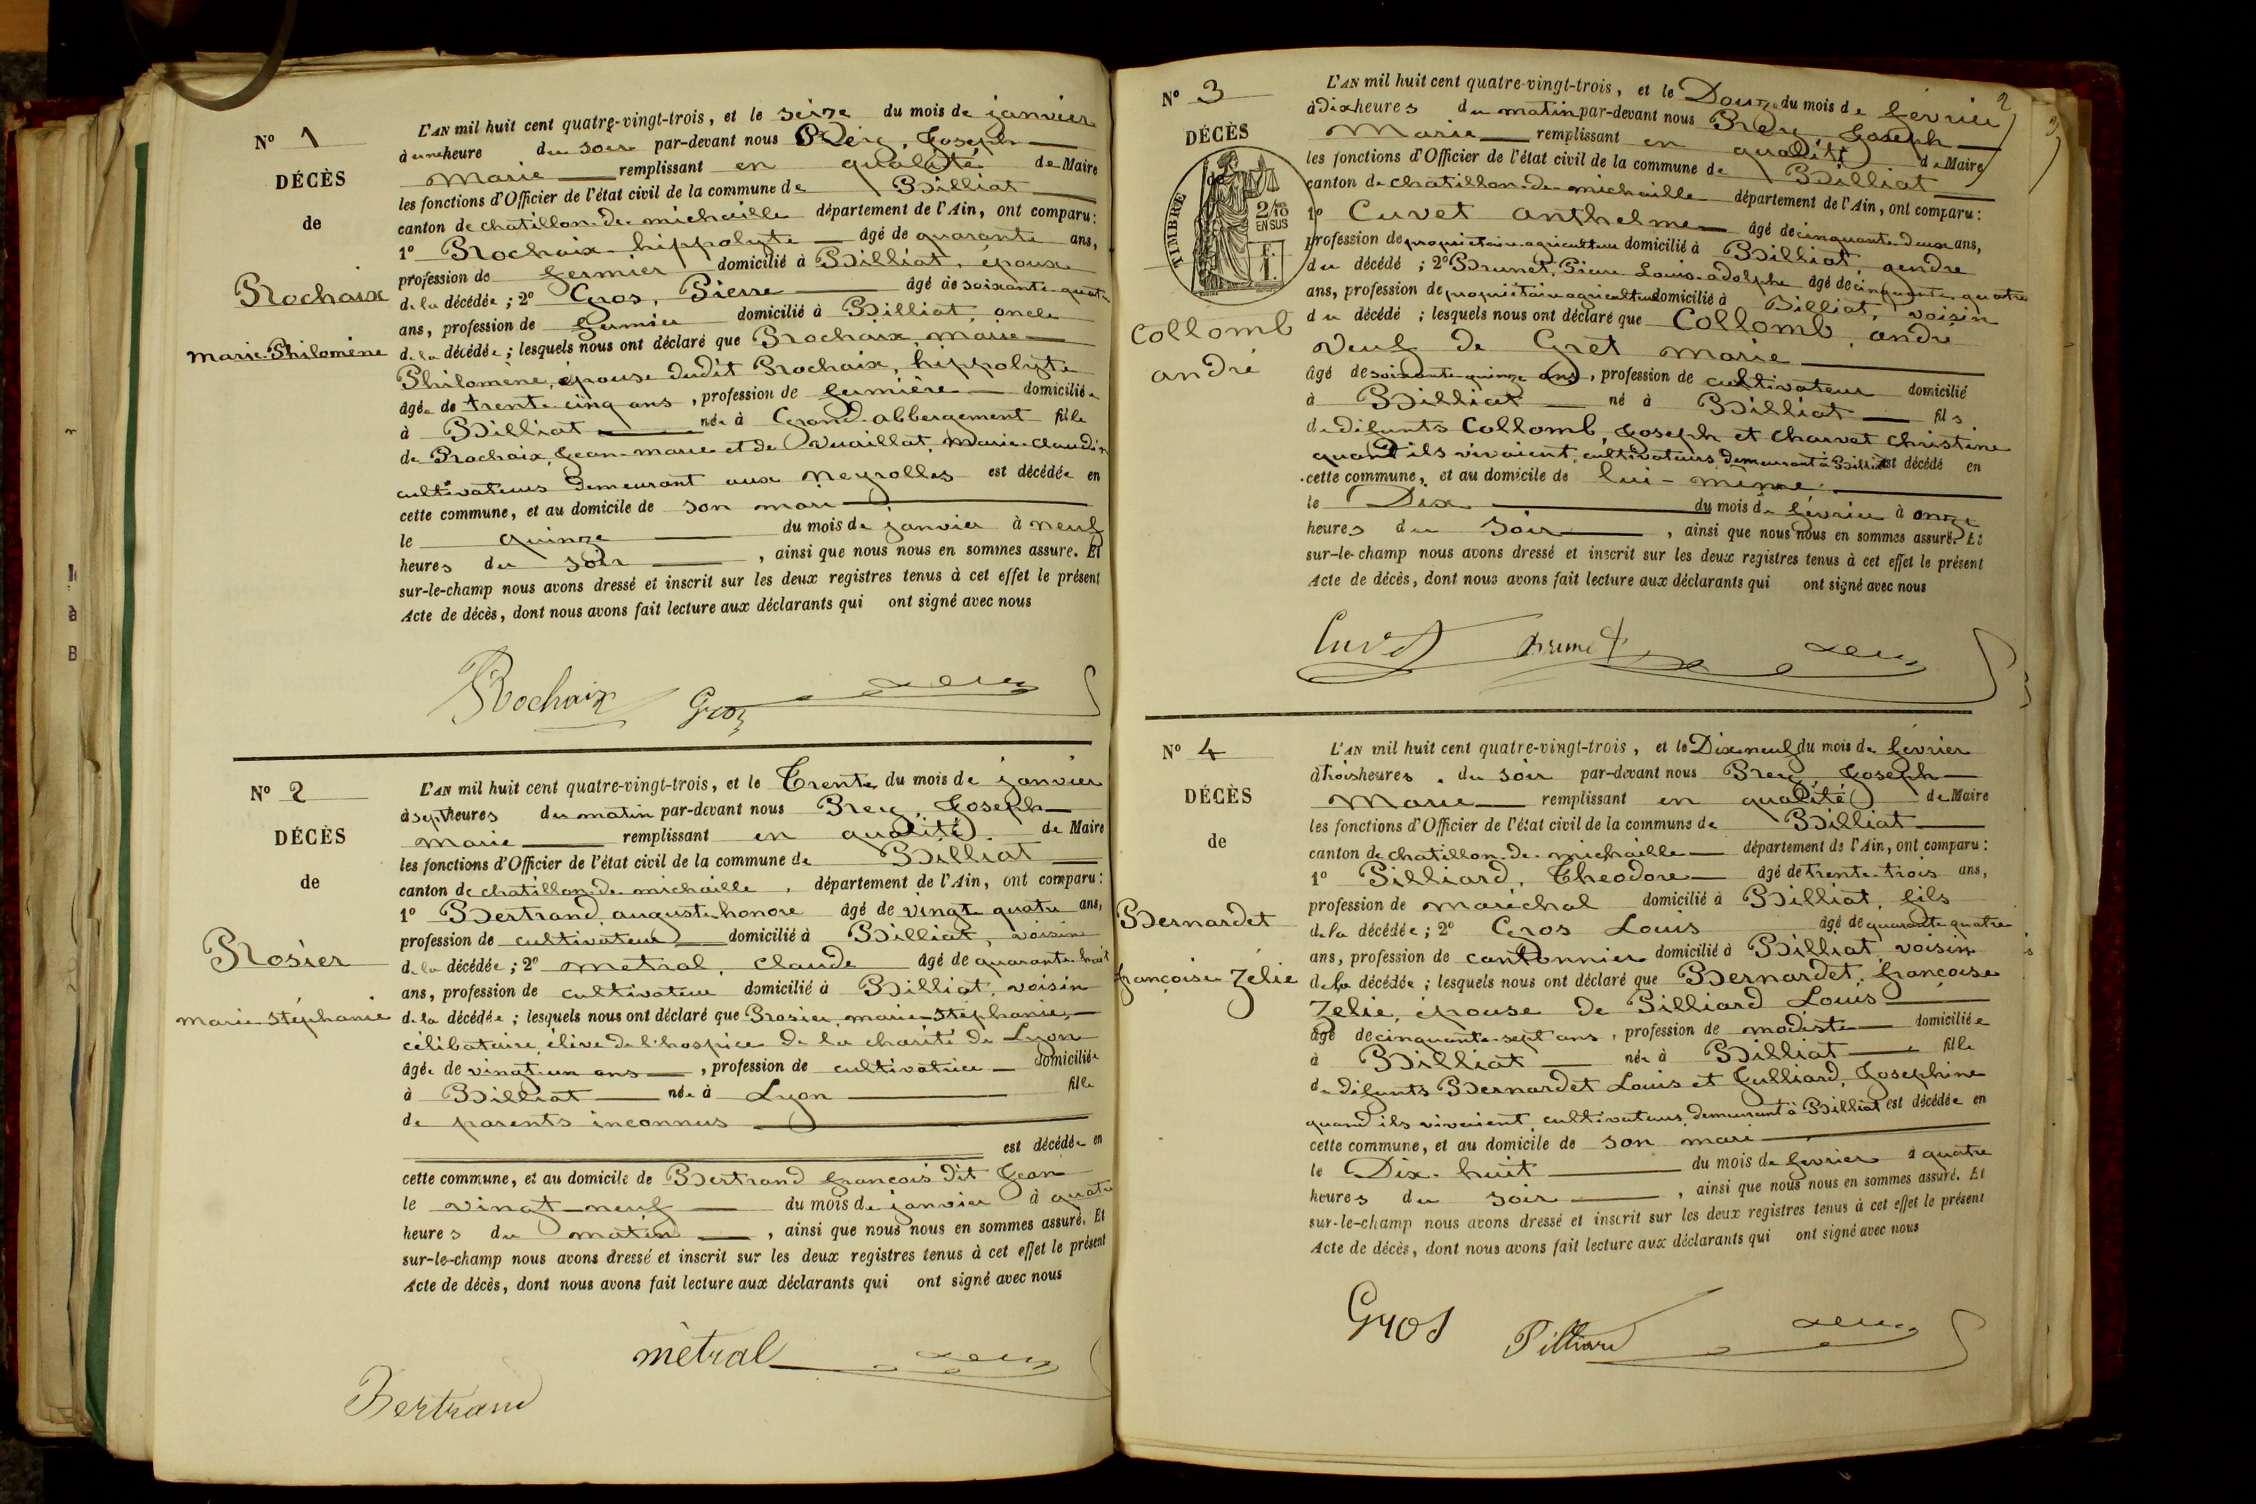 N° 1
DÉCÈS
de
Rochaix
Marie Philomène
L'AN mil huit cent quatre-vingt-trois, et le seize du mois de janvier
à une heure du soir par-devant nous Joseph
Marie remplissant en qualité de Maire
les fonctions d'Officier de l'état civil de la commune de Billiat
canton de chatillon-de-michaille département de l'Ain, ont comparu:
1° Rochaix hippolyte âgé de quarante ans,
profession de fermier domicilié à Billiat, époux
de la décédée; 2° Gros, Pierre âgé de soixante quatre
ans, profession de fermier domicilié à Billiat, oncle
de la décédée; lesquels nous ont déclaré que Rochaix, marie
Philomène, épouse dudit Rochaix, hippolyte
âgée de trente cinq ans, profession de fermière domiciliée
à Billiat née à Grand-abbergement fille
de Rochaix, Jean-marie et de Vuaillat, Marie-claudin
cultivateurs demeurant aux Neyrolles est décédée en
cette commune, et au domicile de son mari
le quinze du mois de janvier à neuf
heures du soir, ainsi que nous nous en sommes assuré. Et
sur-le-champ nous avons dressé et inscrit sur les deux registres tenus à cet effet le présent
Acte de décès, dont nous avons fait lecture aux déclarants qui ont signé avec nous
Rochaix Gros
N° 2
DÉCÈS
de
Rosier
marie Stéphanie
L'AN mil huit cent quatre-vingt-trois, et le Trente du mois de janvier
à sept heures du matin par-devant nous Joseph
Marie remplissant en qualité de Maire
les fonctions d'Officier de l'état civil de la commune de Billiat
canton de chatillon-de-michaille, département de l'Ain, ont comparu:
1° Bertrand auguste honore âgé de vingt quatre ans,
profession de cultivateur domicilié à Billiat, voisin
de la décédée; 2° metral, claude âgé de quarante huit
ans, profession de cultivateur domicilié à Billiat, voisin
de la décédée; lesquels nous ont déclaré que Rosier, marie-Stephanie,
célibataire, élève de l'hospice de la charité de Lyon
âgée de vingt un ans, profession de cultivatrice domiciliée
à Billiat née à Lyon fille
de parents inconnus
est décédée en
cette commune, et au domicile de Bertrand françois dit Jean
le vingt-neuf du mois de janvier à quatre
heures du matin, ainsi que nous nous en sommes assuré. Et
sur-le-champ nous avons dressé et inscrit sur les deux registres tenus à cet effet le présent
Acte de décès, dont nous avons fait lecture aux déclarants qui ont signé avec nous
mètral
Bertrand
2
N° 3
DÉCÈS
de
TIMBRE
2/10
EN SUS
Collomb
andré
L'AN mil huit cent quatre-vingt-trois, et le Douze du mois de février
à Dix heures du matin par-devant nous Joseph
Marie remplissant en qualité de Maire
les fonctions d'Officier de l'état civil de la commune de Billiat
canton de chatillon-de-michaille département de l'Ain, ont comparu:
1° Cuvet anthelme âgé de cinquante-deux ans,
profession de propriétaire agriculteur domicilié à Billiat, gendre
du décédé; 2° Brunet, Pierre Louis-adolphe âgé de cinquante quatre
ans, profession de propriétaire agriculteur domicilié à Billiat, voisin
du décédé; lesquels nous ont déclaré que Collomb, andré
veuf de Gret Marie
âgé de soixante quinze ans, profession de cultivateur domicilié
à Billiat né à Billiat fils
de défunts Collomb, Joseph et Charvet Christine
quand ils vivaient, cultivateurs demeurant à Billiat est décédé en
cette commune, et au domicile de lui-même
le Dix du mois de février à onze
heures du soir, ainsi que nous nous en sommes assuré. Et
sur-le-champ nous avons dressé et inscrit sur les deux registres tenus à cet effet le présent
Acte de décès, dont nous avons fait lecture aux déclarants qui ont signé avec nous
Cuvet Brunet
N° 4
DÉCÈS
de
Bernardet
françoise Zélie
L'AN mil huit cent quatre-vingt-trois, et le Dix neuf du mois de février
à trois heures du soir par-devant nous Joseph
Marie remplissant en qualité de Maire
les fonctions d'Officier de l'état civil de la commune de Billiat
canton de chatillon-de-michaille département de l'Ain, ont comparu:
1° Pilliard, Theodore âgé de trente-trois ans,
profession de maréchal domicilié à Billiat, fils
de la décédée; 2° Gros Louis âgé de quarante quatre
ans, profession de cantonnier domicilié à Billiat, voisin
de la décédée; lesquels nous ont déclaré que Bernardet, françoise
Zelie, épouse de Pilliard Louis
âgé de cinquante-sept ans, profession de modiste domiciliée
à Billiat née à Billiat fille
de défunts Bernardet Louis et Julliard, Josephine
quand ils vivaient, cultivateurs demeurant à Billiat est décédée en
cette commune, et au domicile de son mari
le Dix-huit du mois de février à quatre
heures du soir, ainsi que nous nous en sommes assuré. Et
sur-le-champ nous avons dressé et inscrit sur les deux registres tenus à cet effet le présent
Acte de décès, dont nous avons fait lecture aux déclarants qui ont signé avec nous
Gros Pilliard